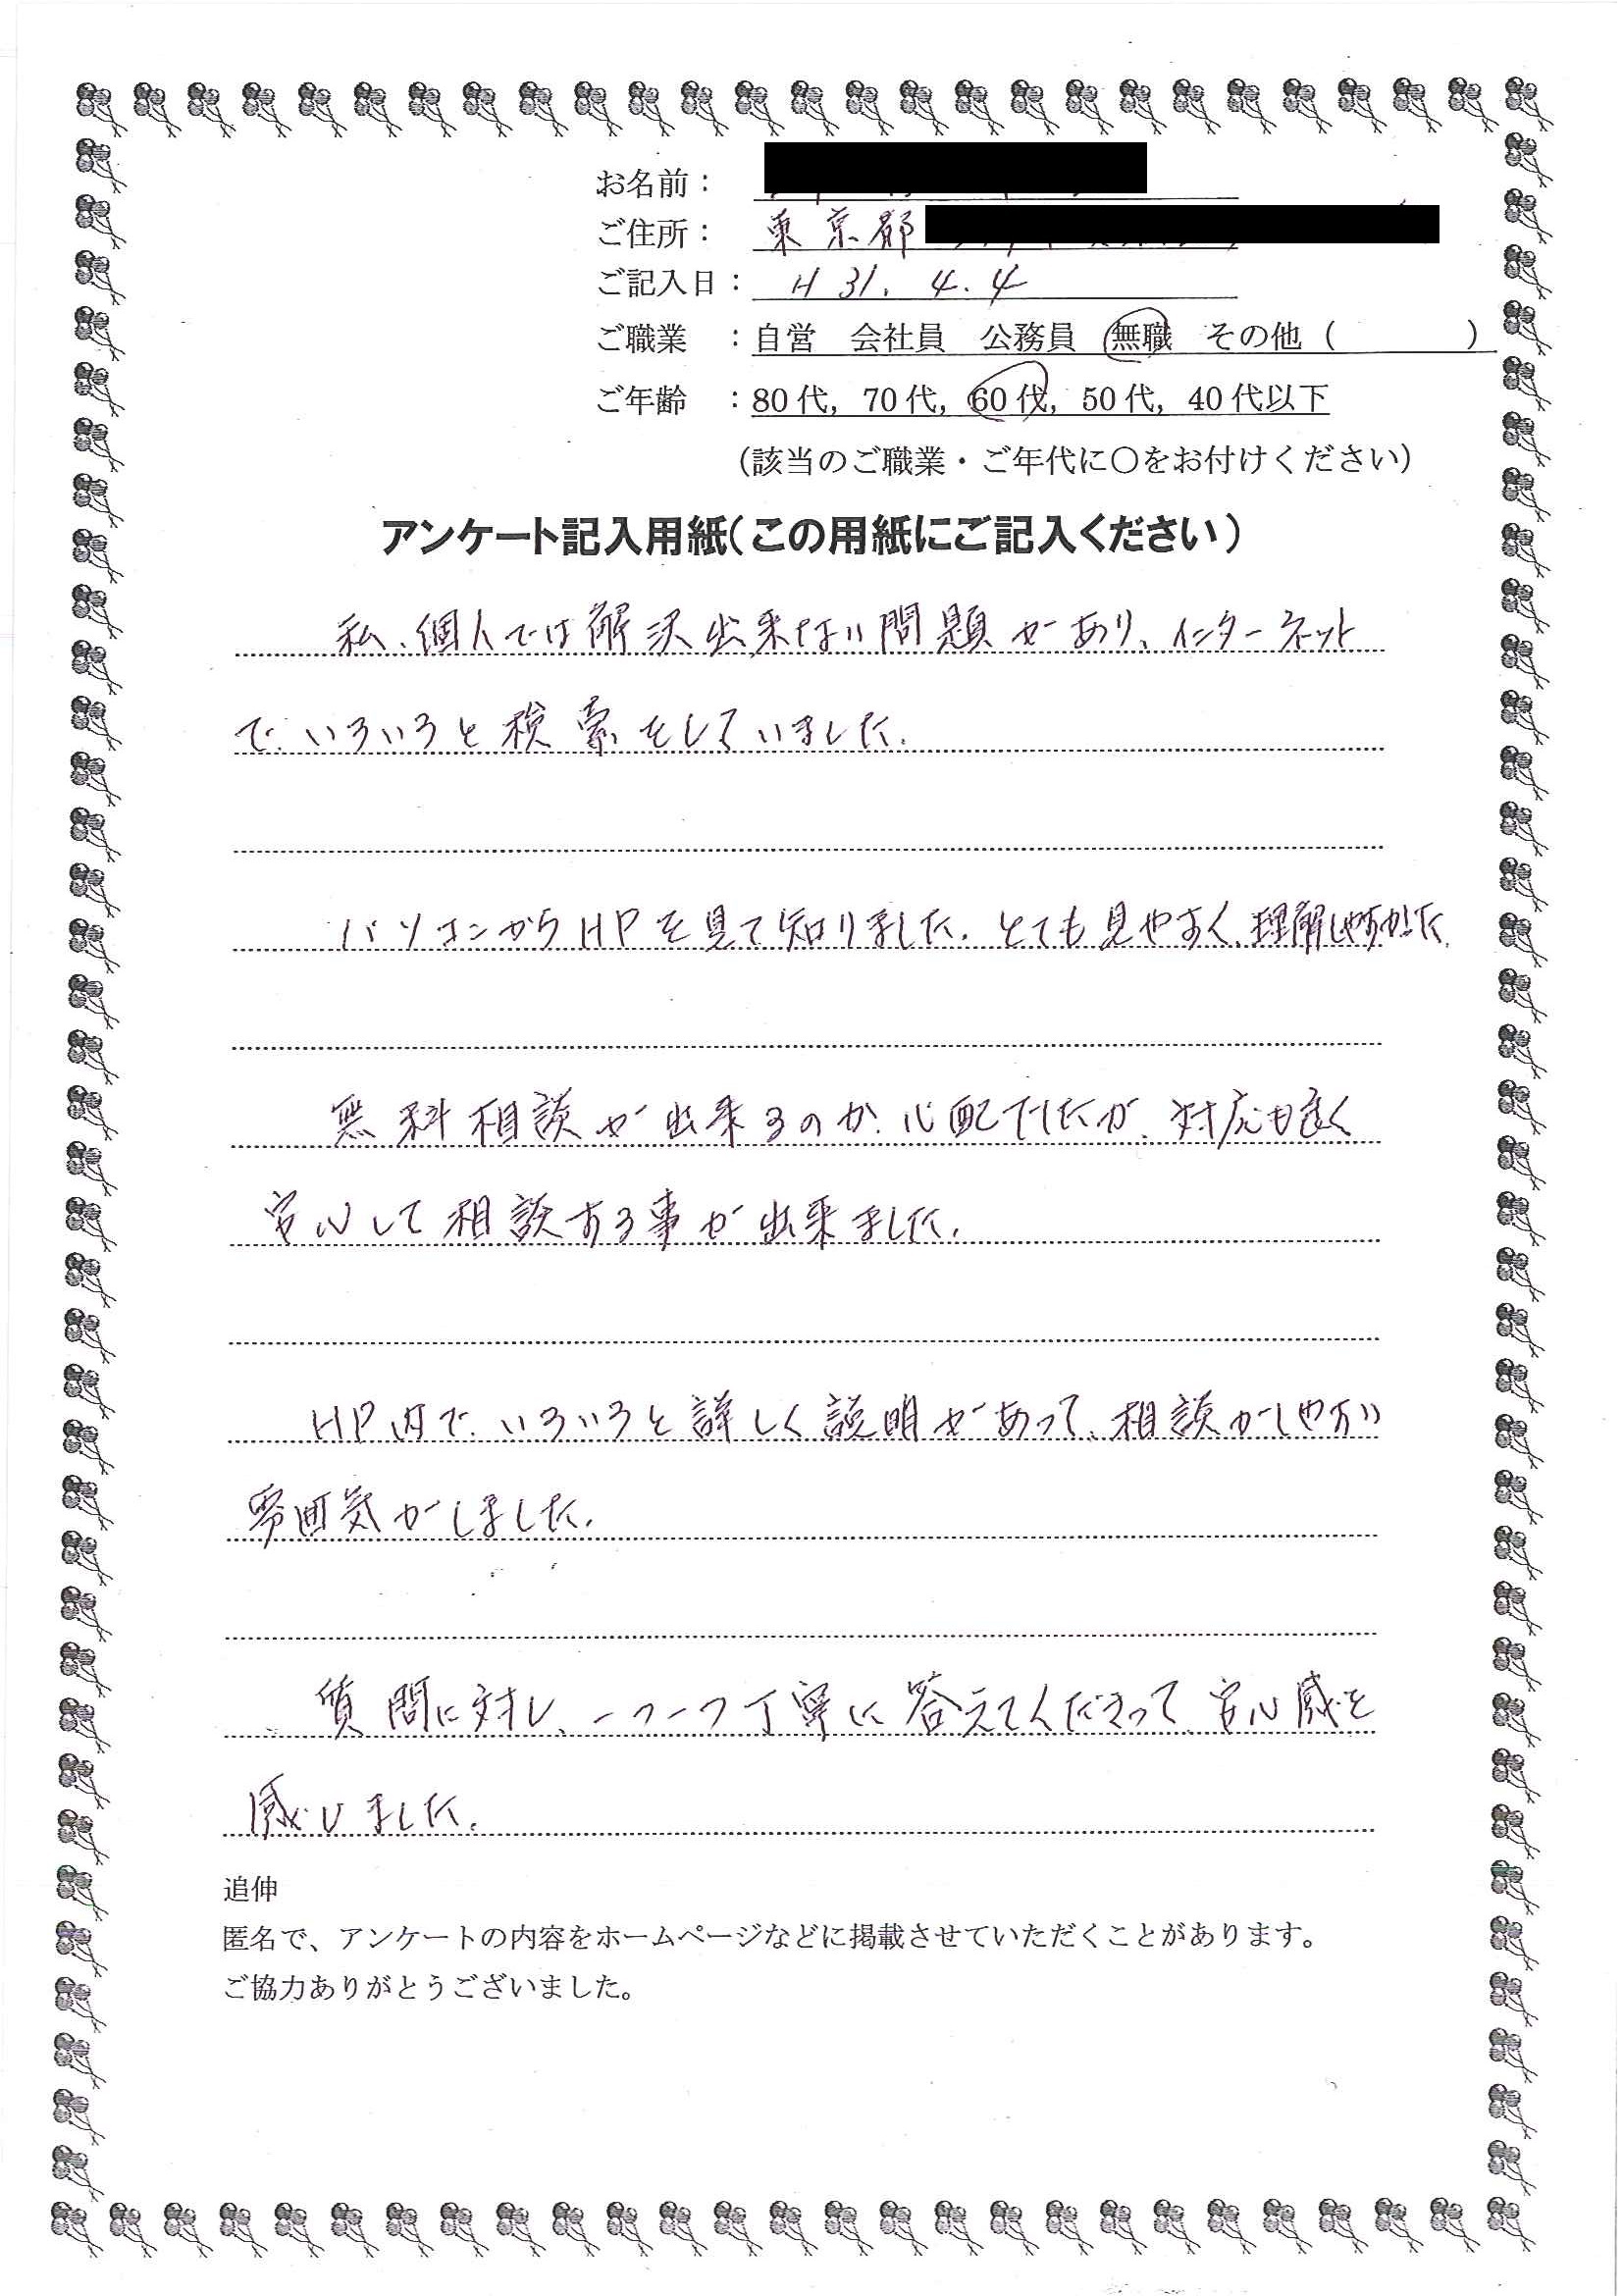 お名前：
ご住所： 東京都
ご記入日： H31.4.4
ご職業 ：自営 会社員 公務員 無職 その他（ ）
ご年齢 ：80代，70代，60代，50代，40代以下
（該当のご職業・ご年代に〇をお付けください）
アンケート記入用紙（この用紙にご記入ください）
私、個人では解決出来ない問題があり、インターネット
で、いろいろと検索をしていました.
パソコンからHPを見て知りました. とても見やすく、理解しやすかった.
無料相談が出来るのか、心配でしたが、対応も良く
安心して相談する事が出来ました.
HP内で、いろいろと詳しく説明があって、相談がしやすい
雰囲気がしました.
質問に対し、一つ一つ丁寧に答えてくださって、安心感を
感じました.
追伸
匿名で、アンケートの内容をホームページなどに掲載させていただくことがあります。
ご協力ありがとうございました。